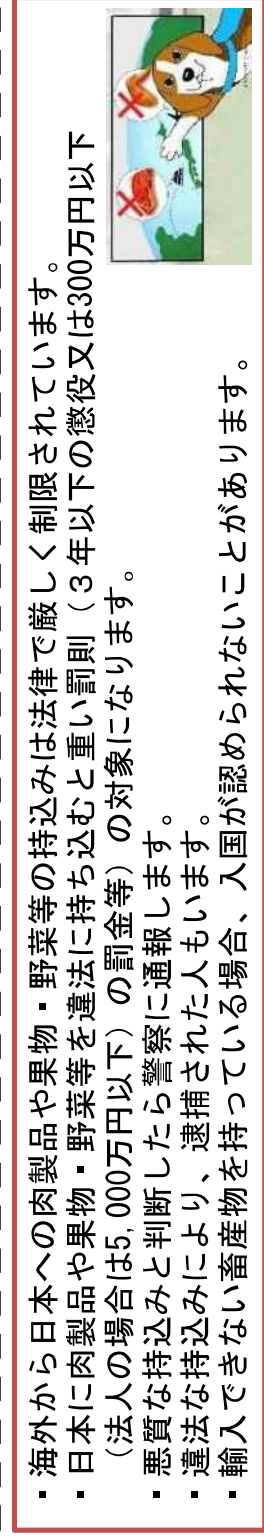 ・海外から日本への肉製品や果物・野菜等の持込みは法律で厳しく制限されています。
・日本に肉製品や果物・野菜等を違法に持ち込むと重い罰則（３年以下の懲役又は300万円以下
（法人の場合は5,000万円以下）の罰金等）の対象になります。
・悪質な持込みと判断したら警察に通報します。
・違法な持込みにより、逮捕された人もいます。
・輸入できない畜産物を持っている場合、入国が認められないことがあります。